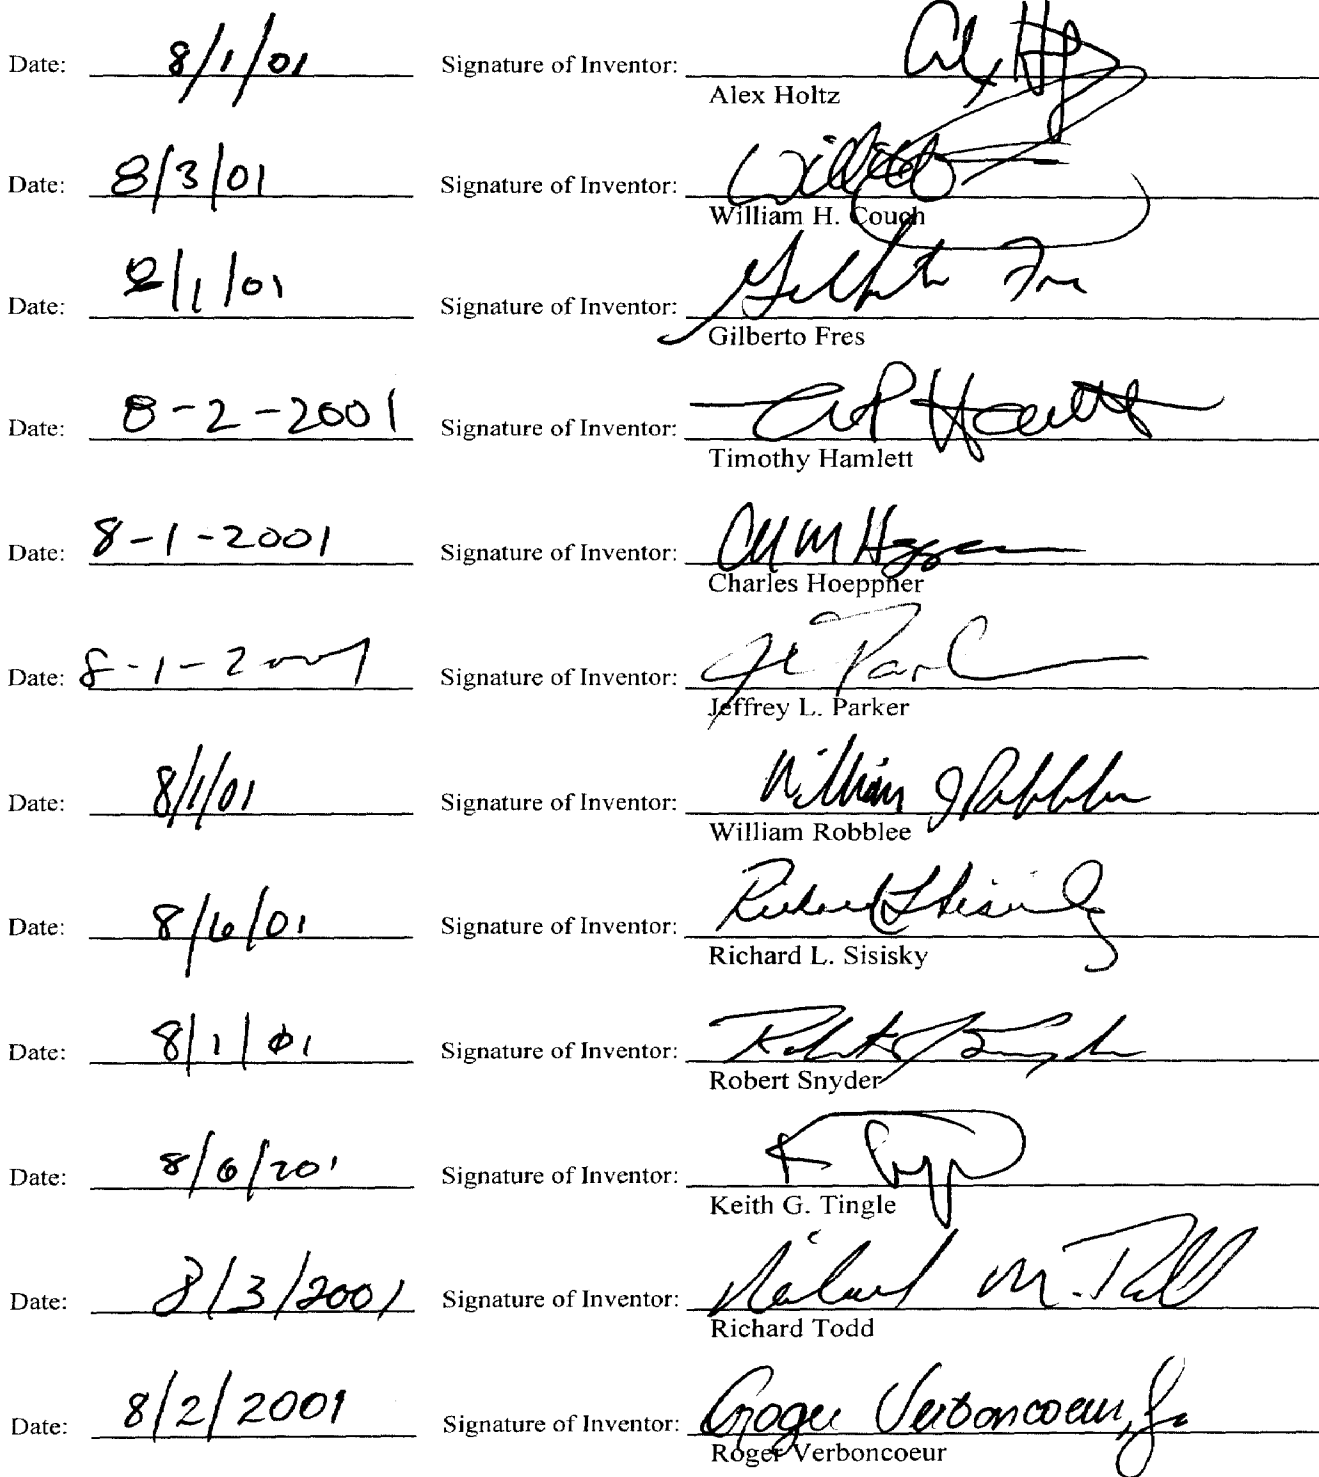 Date: 8/1/01 Signature of Inventor: Alex H
Alex Holtz
Date: 8/3/01 Signature of Inventor:
William H. Couch
Date: 8/1/01 Signature of Inventor:
Gilberto Fres
Date: 8-2-2001 Signature of Inventor:
Timothy Hamlett
Date: 8-1-2001 Signature of Inventor:
Charles Hoeppner
Date: 8-1-2001 Signature of Inventor:
Jeffrey L. Parker
Date: 8/1/01 Signature of Inventor: William J Robblee
William Robblee
Date: 8/6/01 Signature of Inventor: Richard L Sisisky
Richard L. Sisisky
Date: 8/1/01 Signature of Inventor:
Robert Snyder
Date: 8/6/201 Signature of Inventor:
Keith G. Tingle
Date: 8/3/2001 Signature of Inventor: Richard M. Todd
Richard Todd
Date: 8/2/2001 Signature of Inventor: Roger Verboncoeur, Jr
Roger Verboncoeur